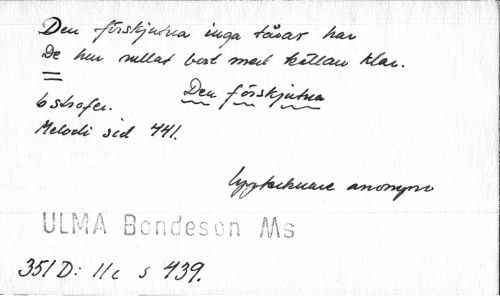 Den förskjutna inga tårar har
De har rullat bort med källan klar.
6 strofer. Den förskjutna
Melodi sid 441.
anonym
ULMA Bondeson Ms
351 D: 11c s 439.